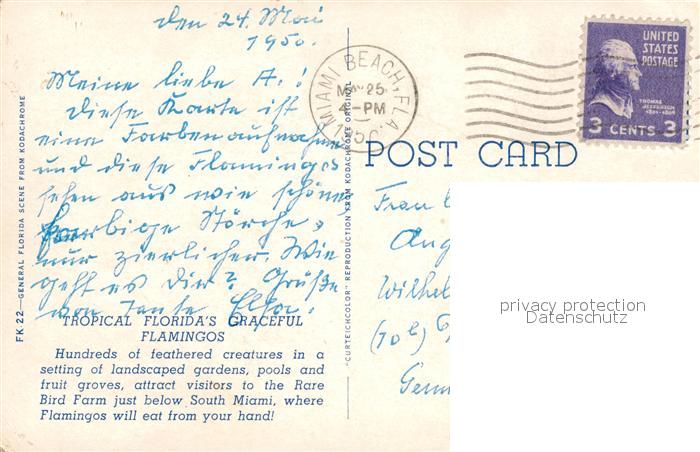 den 24. Mai
1950.
Meine liebe A.!
Diese Karte ist
eine Farbenaufnahme
und diese Flamingos
sehen aus wie schöne
farbige Störche,
nur zierlicher. Wie
geht es Dir? Grüße
von Tante Elsa.
TROPICAL FLORIDA'S GRACEFUL
FLAMINGOS
Hundreds of feathered creatures in a
setting of landscaped gardens, pools and
fruit groves, attract visitors to the Rare
Bird Farm just below South Miami, where
Flamingos will eat from your hand!
FK 22—GENERAL FLORIDA SCENE FROM KODACHROME
"CURTEICHCOLOR" REPRODUCTION FROM KODACHROME ORIGINAL
MIAMI BEACH, FLA.
MAY 25
4-PM
1950
UNITED
STATES
POSTAGE
THOMAS
JEFFERSON
1801-1809
3 CENTS 3
POST CARD
Frau
Aug
Wilhel
Germ
privacy protection
Datenschutz